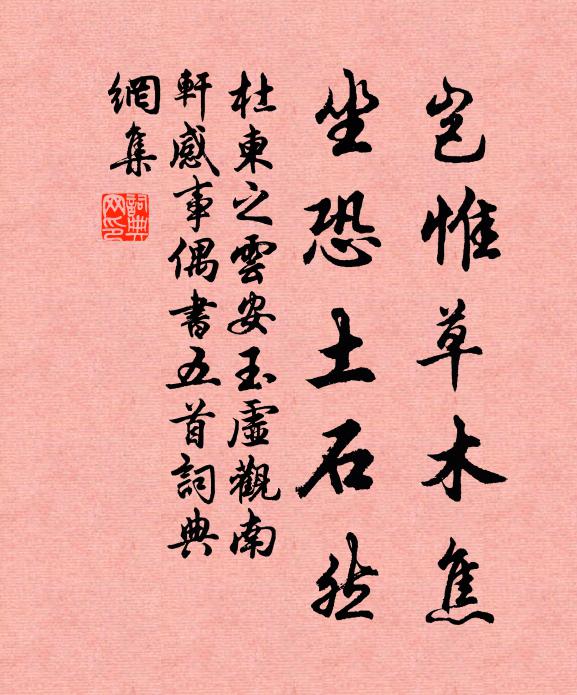 岂惟草木焦
坐恐土石然
杜東之雲安玉虛觀南
軒感事偶書五首詞典
網集
詞典
网印